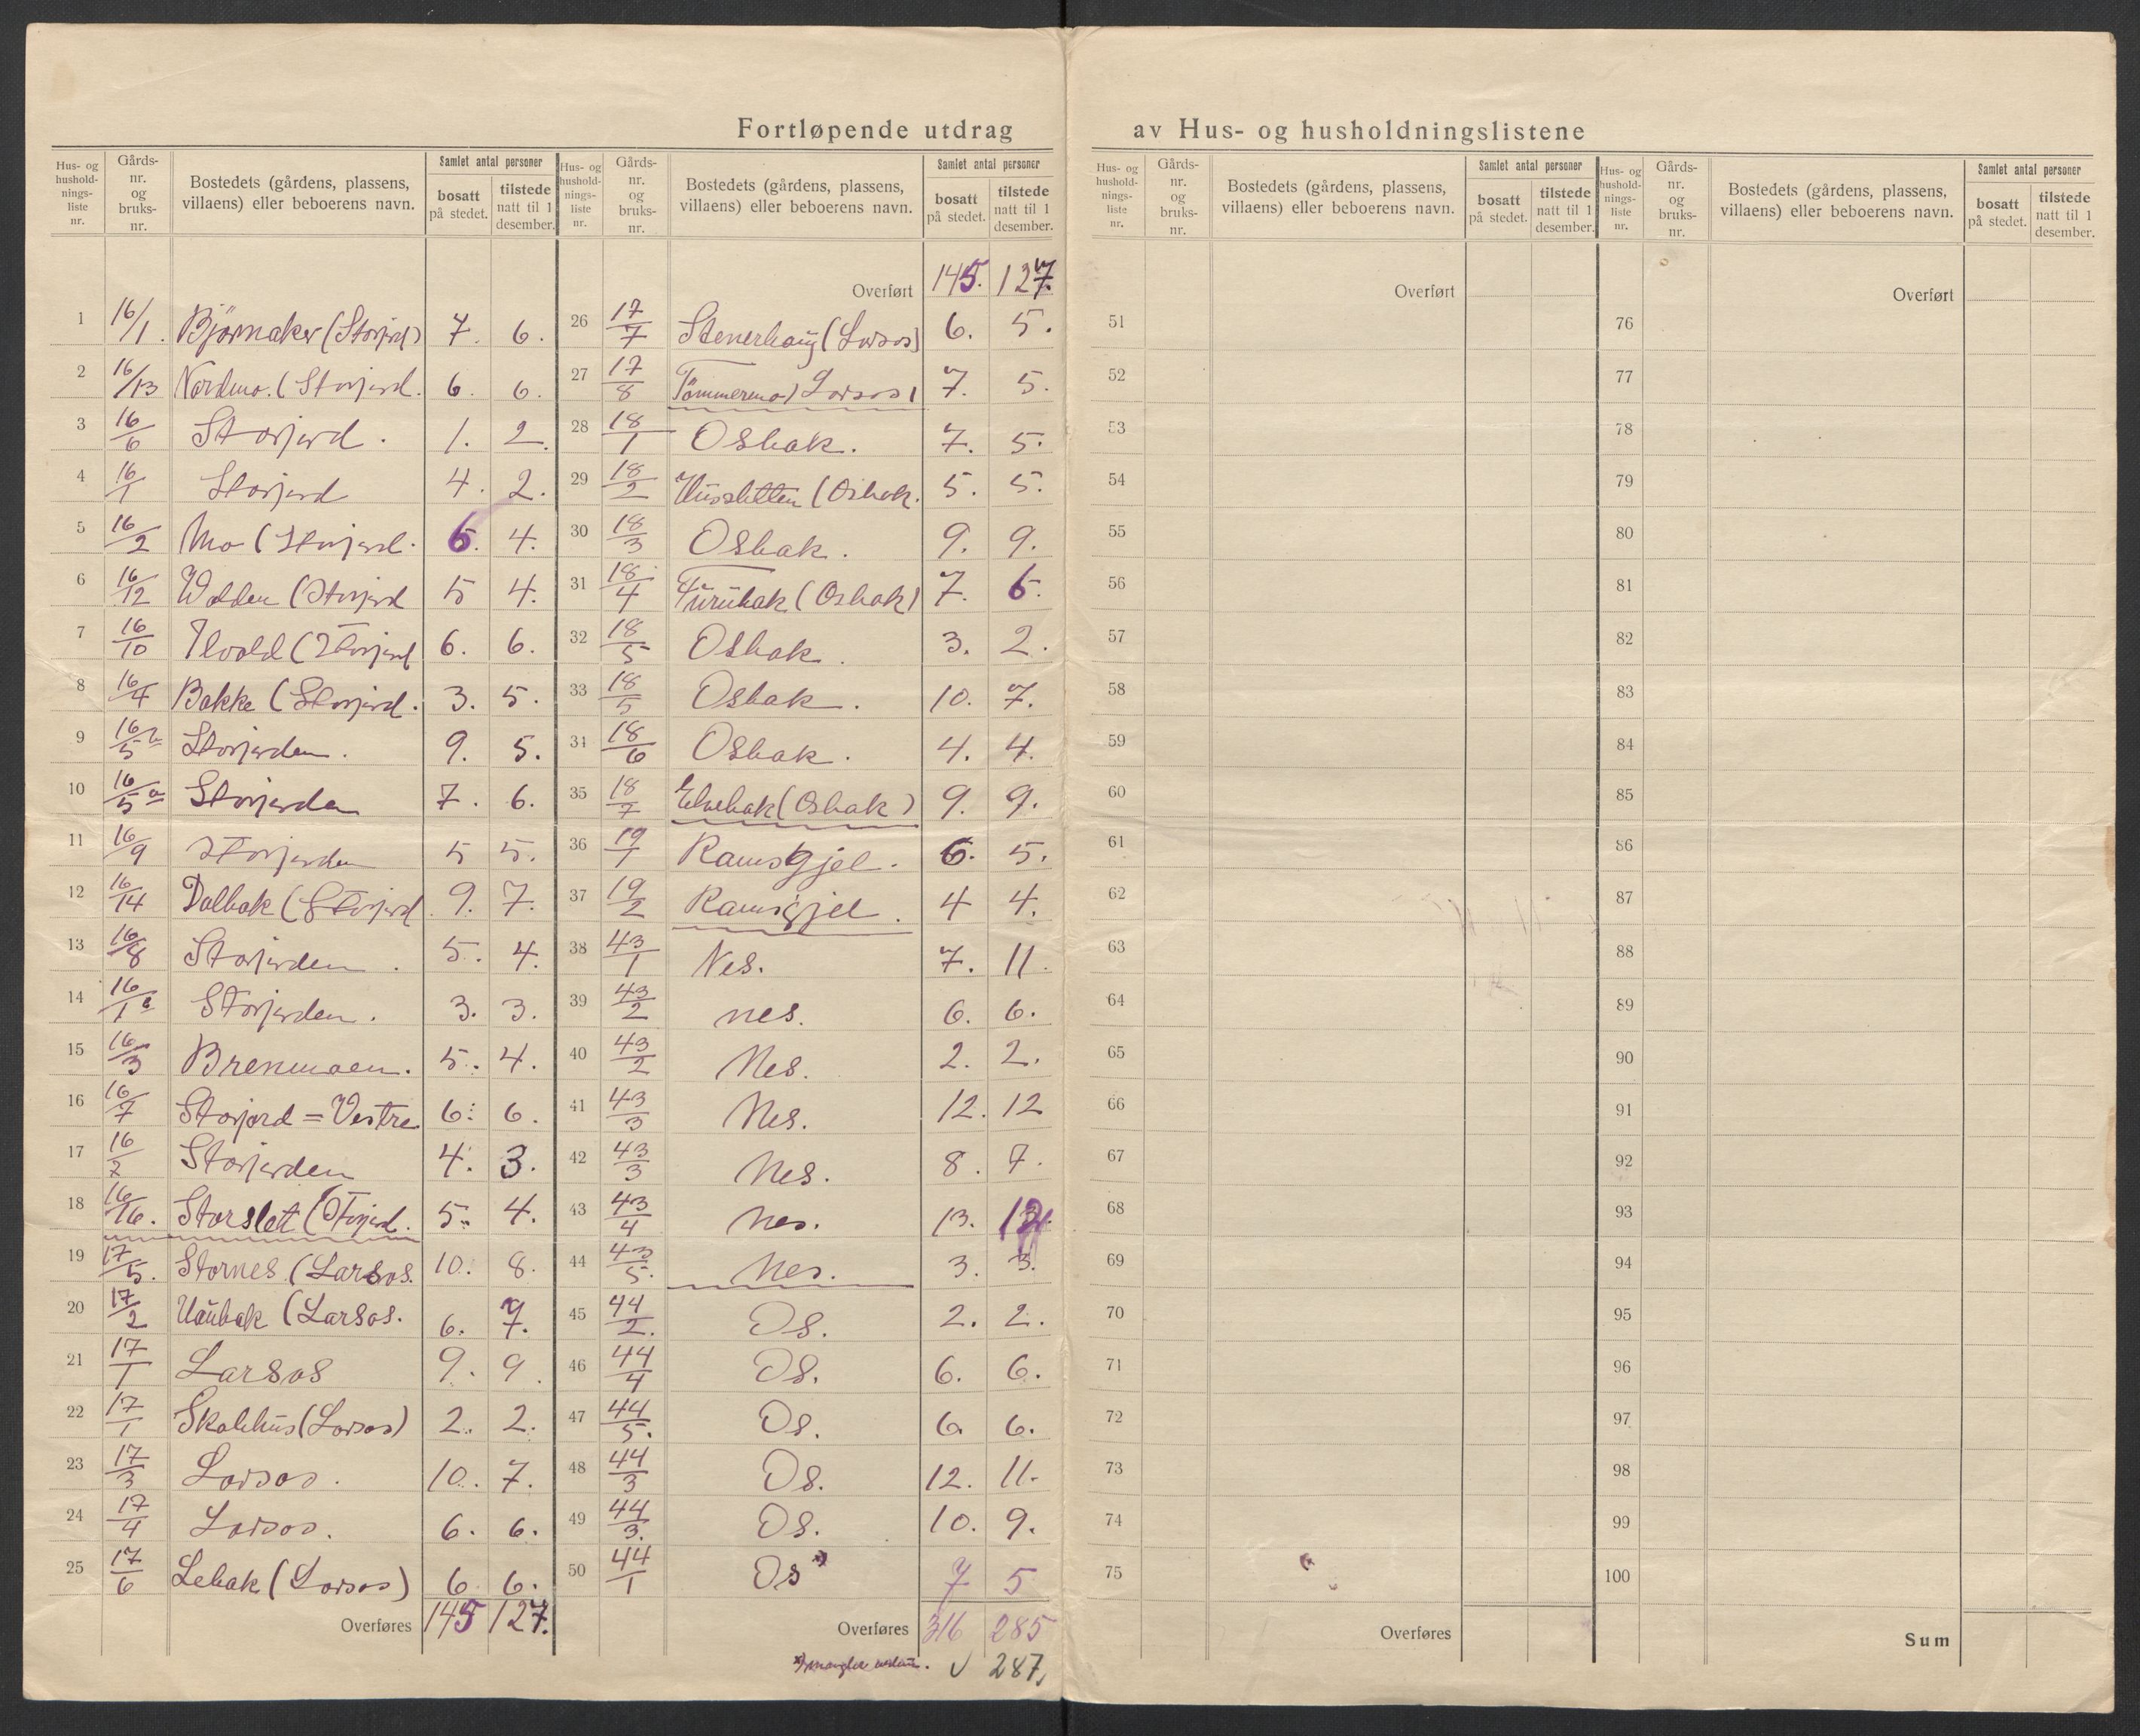 Fortløpende utdrag av Hus- og husholdningslistene
Hus- og hushold-nings-liste nr. Gårds-nr. og bruks-nr. Bostedets (gårdens, plassens, villaens) eller beboerens navn. Samlet antal personer bosatt på stedet. tilstede natt til 1 desember.
1 16/1. Bjørnaker (Storjord) 7. 6.
2 16/13 Nordmo. (Storjord. 6. 6.
3 16/6 Storjord. 1. 2.
4 16/1 Storjord 4. 2.
5 16/2 Mo (Storjord. 6. 4.
6 16/12 Wolden (Storjord 5 4.
7 16/10 Ilvold (Storjord 6. 6.
8 16/4 Bakke (Storjord. 3. 5.
9 16/5 b Storjorden. 9. 5.
10 16/5 a Storjorden 7. 6.
11 16/9 Storjorden 5 5.
12 16/14 Dalbak (Storjord. 9. 7.
13 16/8 Storjorden. 5. 4.
14 16/1 Storjorden. 3. 3.
15 16/3 Brenmoen. 5. 4.
16 16/7 Storjord = Vestre 6. 6.
17 16/7 Storjorden 4. 3.
18 16/16. Storslett (Storjord. 5. 4.
19 17/5. Stornes (Larsos. 10. 8.
20 17/2 Naubak (Larsos. 6. 7.
21 17/1 Larsos 9. 9.
22 17/1 Skolehus (Larsos) 2. 2.
23 17/3 Larsos. 10. 7.
24 17/4 Larsos. 6. 6.
25 17/6 Lebak (Larsos) 6. 6.
Overføres 145 127.
Hus- og hushold-nings-liste nr. Gårds-nr. og bruks-nr. Bostedets (gårdens, plassens, villaens) eller beboerens navn. Samlet antal personer bosatt på stedet. tilstede natt til 1 desember.
Overført 145. 127.
26 17/7 Stenerhaug (Larsos) 6. 5.
27 17/8 Tømmermo) Larsos) 7. 5.
28 18/1 Osbak. 7. 5.
29 18/2 Hussletten (Osbak. 5. 5.
30 18/3 Osbak. 9. 9.
31 18/4 Furubak (Osbak) 7. 6.
32 18/5 Osbak. 3. 2.
33 18/5 Osbak. 10. 7.
34 18/6 Osbak. 4. 4.
35 18/7 Elvebak (Osbak) 9. 9.
36 19/1 Ramsgjel. 6. 5.
37 19/2 Ramsgjel. 4 4.
38 43/1 Nes. 7. 11.
39 43/2 nes. 6. 6.
40 43/2 Nes. 2. 2.
41 43/3 Nes. 12. 12
42 43/3 Nes. 8. 7.
43 43/4 nes. 13.
44 43/5. Nes. 3. 3.
45 44/2. Os. 2. 2.
46 44/4 Os. 6. 6.
47 44/5. Os. 6. 6.
48 44/3 Os. 12. 11.
49 44/3. Os. 10. 9.
50 44/1 Os*) 7 5
Overføres 316 285
*) mangler √ 287,
Hus- og hushold-nings-liste nr. Gårds-nr. og bruks-nr. Bostedets (gårdens, plassens, villaens) eller beboerens navn. Samlet antal personer bosatt på stedet. tilstede natt til 1 desember.
Overført
51
52
53
54
55
56
57
58
59
60
61
62
63
64
65
66
67
68
69
70
71
72
73
74
75
Overføres
Hus- og hushold-nings-liste nr. Gårds-nr. og bruks-nr. Bostedets (gårdens, plassens, villaens) eller beboerens navn. Samlet antal personer bosatt på stedet. tilstede natt til 1 desember.
Overført
76
77
78
79
80
81
82
83
84
85
86
87
88
89
90
91
92
93
94
95
96
97
98
99
100
Sum